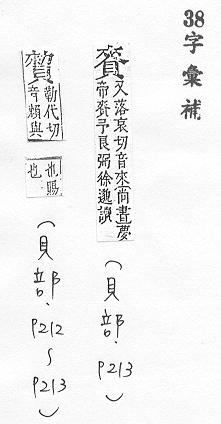 38字彙補
賚 又落哀切音來尚書夢
帝賚予良弼徐邈讀
(貝部.P213)
勒代切
音賴與
也賜
也
(貝部.P212~P213)